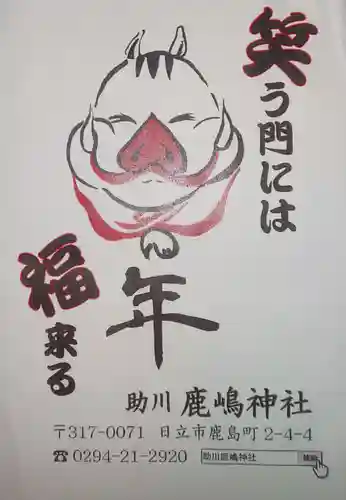 笑う門には
福来る
年
助川 鹿嶋神社
〒317-0071 日立市鹿島町 2-4-4
☎ 0294-21-2920 助川鹿嶋神社 検索